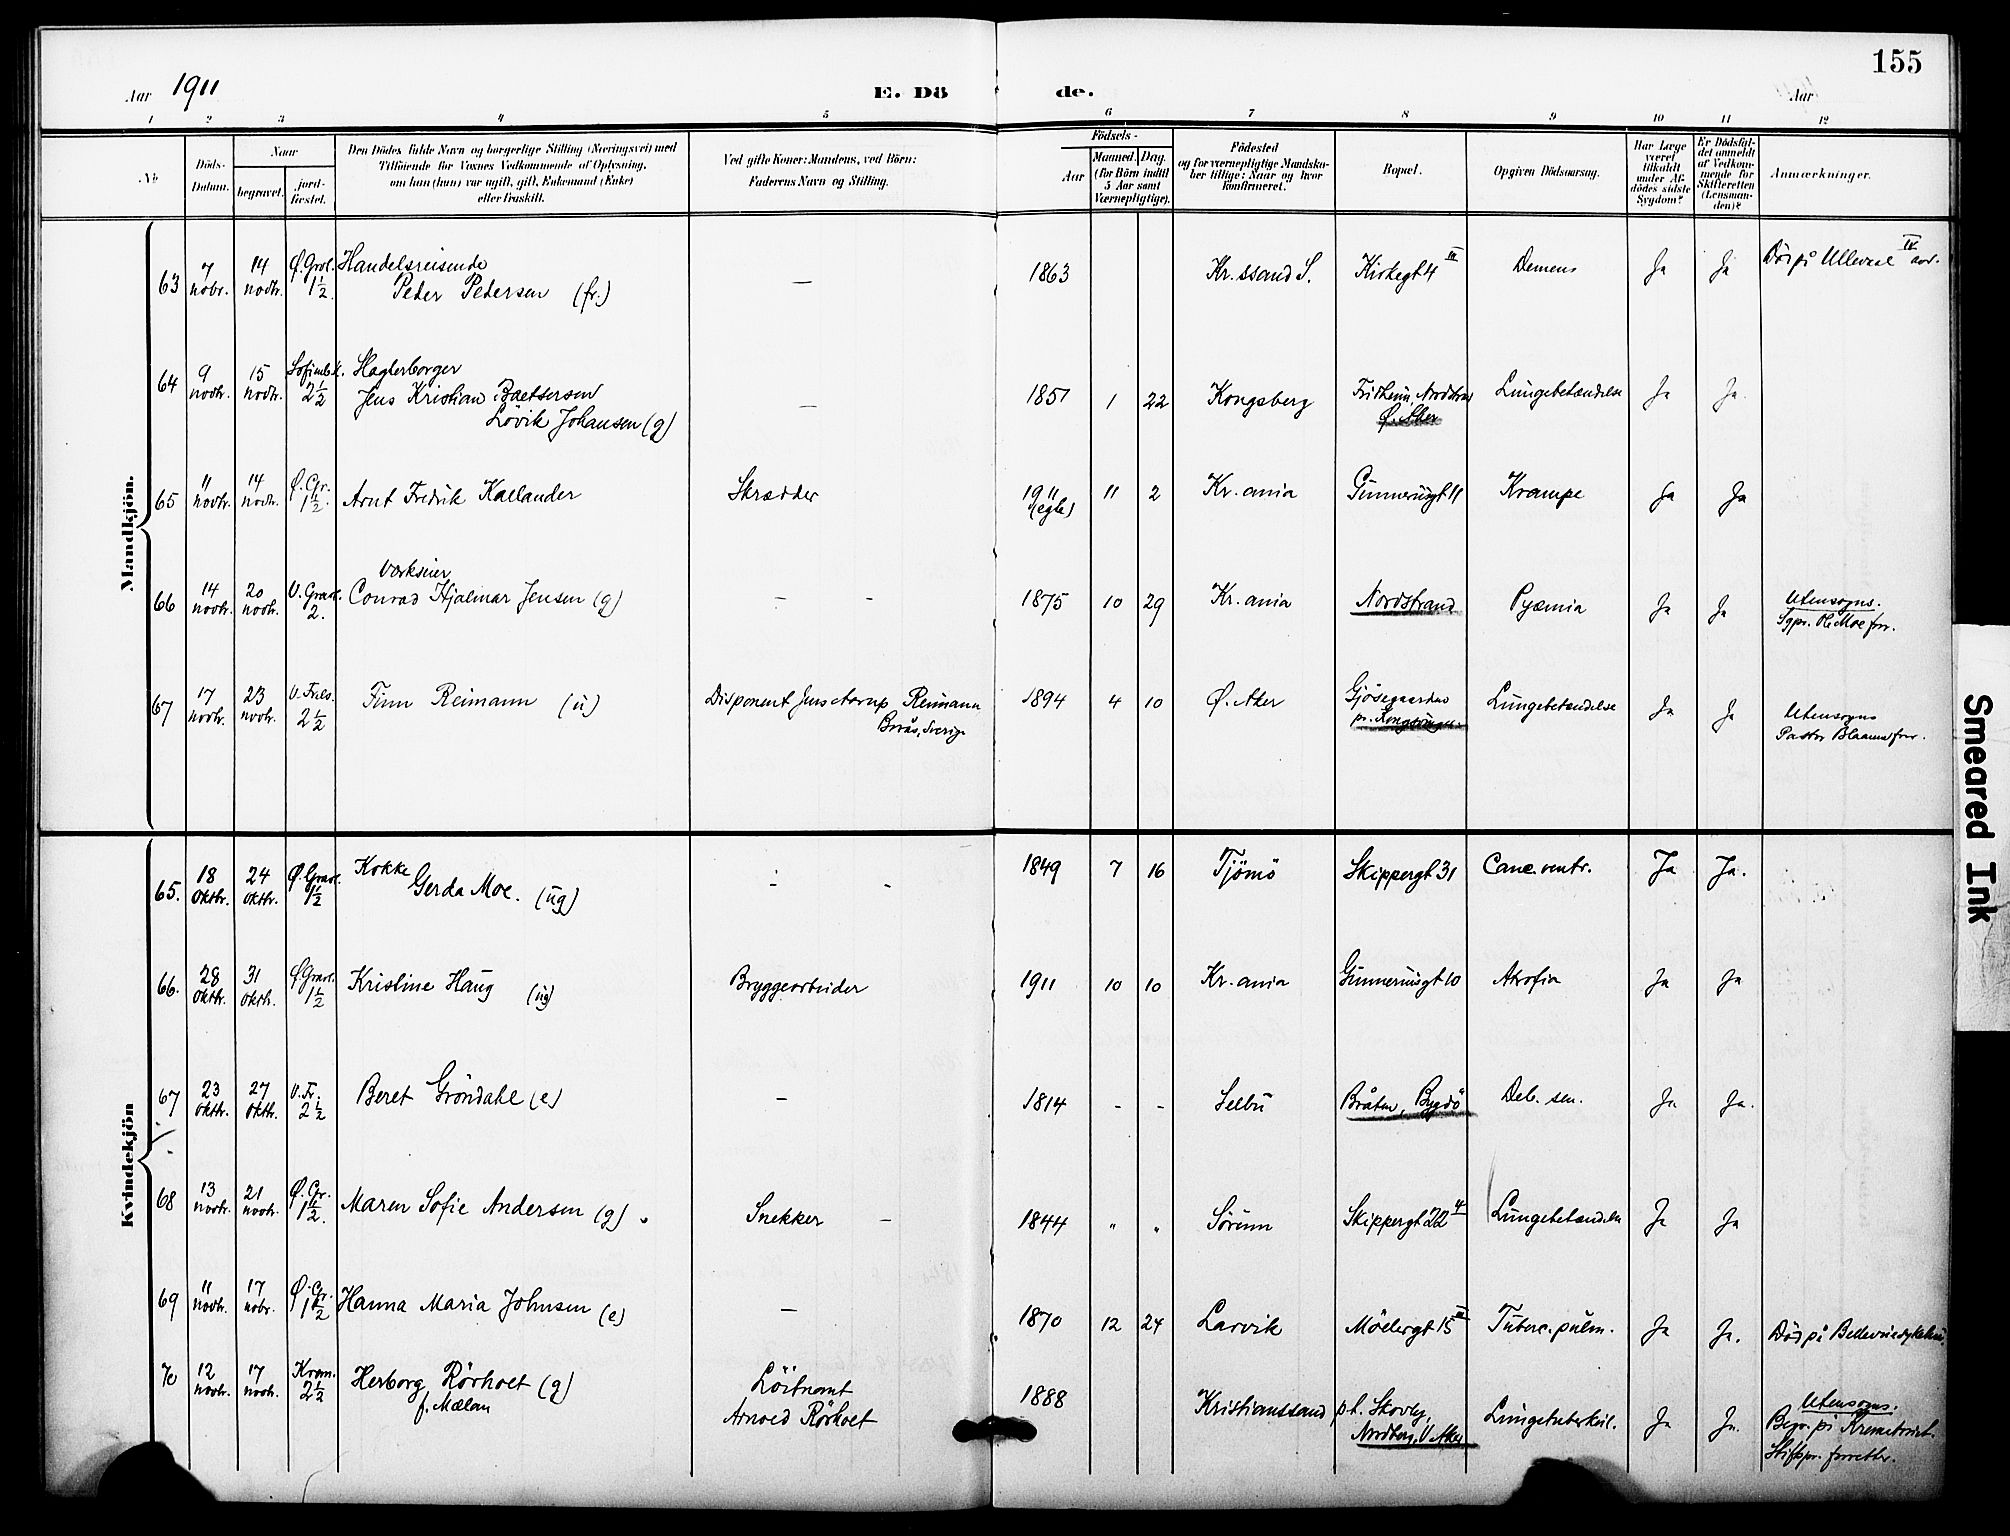 155
Aar 1911
E. Dö de.
Aar
1 2 3 4 5 6 7 8 9 10 11 12
No
Döds-
Datum.
Naar
begravet.
jord-
fæstet.
Den Dödes fulde Navn og borgerlige Stilling (Næringsvei) med
Tilföiende for Voxnes Vedkommende af Oplysning,
om han (hun) var ugift, gift, Enkemand (Enke)
eller fraskilt.
Ved gifte Koner: Mandens, ved Börn:
Faderens Navn og Stilling.
Födsels-
Aar
Maaned.
Dag.
(for Börn indtil
5 Aar samt
Værnepligtige).
Födested
og for værnepligtige Mandska-
ber tillige: Naar og hvor
konfirmeret.
Bopæl.
Opgiven Dödsaarsag.
Har Læge
været
tilkaldt
under Af-
dödes sidste
Sygdom?
Er Dödsfal-
det anmeldt
af Vedkom-
mende for
Skifteretten
(Lensman-
den)?
Anmærkninger.
Mandkjön.
63 7 nobr. 14 novbr. Ø. Grvl. 1½ Handelsreisende
Peder Pedersen (fr.) — 1863 Kr.ssand S. Kirkegt 4 III Demens Ja Ja Död på Ullevaal IV avd.
64 9 novbr. 15 novbr. 2½ Slagterborger
Jens Kristian
Lövik Johansen (g) — 1851 1 22 Kongsberg Fridheim, Nordstrand
Ø. Aker Lungebetændelse Ja Ja.
65 11 novbr. 14 novbr. Ø. Gr. 1½ Arnt Fredrik Kallander Skrædder 1911
(egte) 11 2 Kr.ania Gunnerusgt 11 Krampe Ja Ja
66 14 novbr. 20 novbr. V. Gravl. 2. Værkseier
Conrad Hjalmar Jensen (g) — — 1875 10 29 Kr.ania Nordstrand Pyæmia Ja Ja Utensogns.
Sgpr. Ole Moe forr.
67 17 novbr. 23 novbr. V. Frels. 2½ Finn Reimann (u) Disponent Jens Reimann
Borås, Sverige 1894 4 10 Ø. Aker Gjösegaarden
pr. Kongsvinger Lungebetændelse Ja Ja Utensogns
Pastor forr.
Kvindekjön
65. 18 oktbr. 24 oktbr. Ø. Gravl. 1½ Kokke
Gerda Moe. (ug) - - 1849 7 16 Tjömö Skippergt 31 Canc. ventr. Ja Ja.
66. 28 oktbr. 31 oktbr. Ø Gravl. 1½ Kristine Haug (ug) Bryggearbeider 1911 10 10 Kr.ania Gunnerusgt 10 Atrofia Ja Ja
67 23 oktbr. 27 oktbr. V. Fr. 2½ Beret Gröndahl (e) — 1814 - - Selbu Bråten, Bygdö Deb. sen. Ja Ja.
68 13 novbr. 21 novbr. Ø. Gr. 1½ Maren Sofie Andersen (g) Snekker — 1844 " " Sörum Skippergt 22 4 Lungebetændelse Ja Ja
69 11 novbr. 17 nobr. Ø. Gr. 1½ Hanna Maria Johnsen (e) — 1870 12 24 Larvik Möllergt 15 III Tuberc. pulm. Ja Ja. Död på Bellevue sykehus.
70 12 novbr. 17 novbr. Krem. 2½ Herborg Rörholt (g)
f. Mælan Löitnant
Arnold Rörholt 1888 Kristianssand p.t. Skovly,
Nordberg, V. Aker Lungetuberkul. Ja Ja. Utensogns.
Begr. på Krematoriet.
Stiftspr. forretter.
Smeared Ink